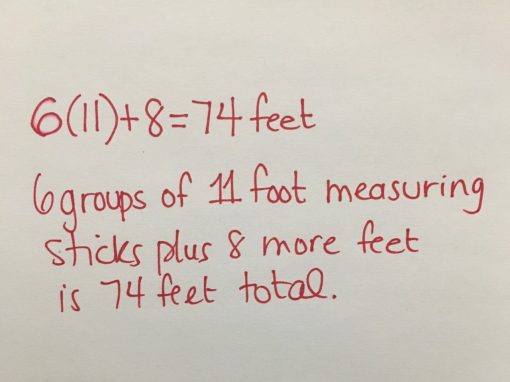 6(11)+8=74 feet
6 groups of 11 foot measuring
sticks plus 8 more feet
is 74 feet total.